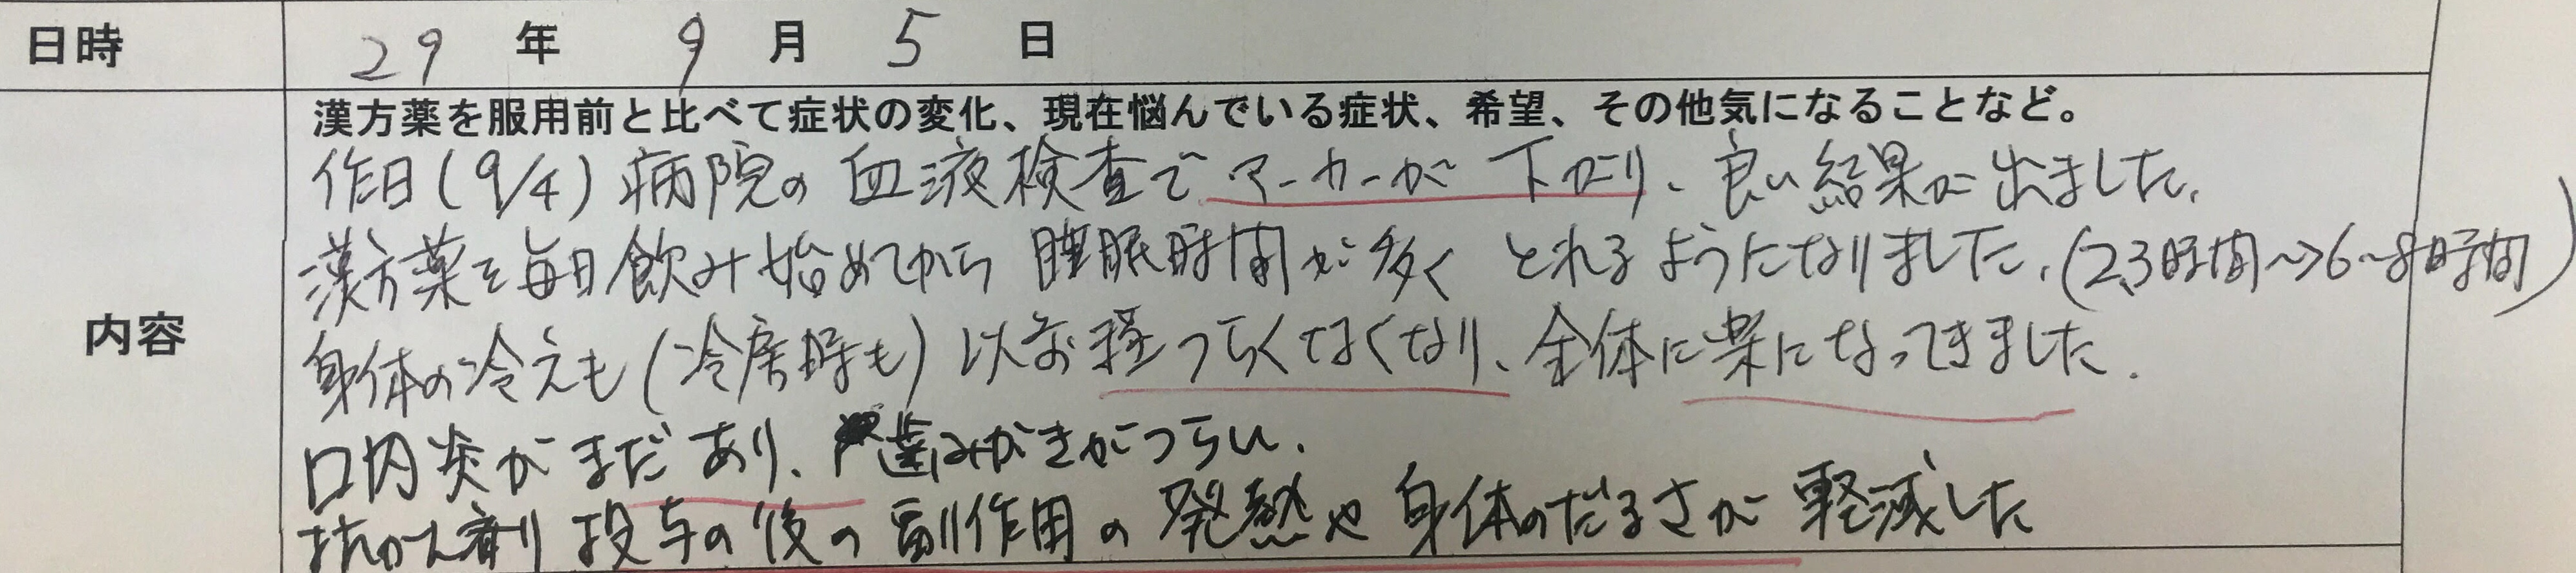 日時 29年 9月 5日
漢方薬を服用前と比べて症状の変化、現在悩んでいる症状、希望、その他気になることなど。
作日(9/4)病院の血液検査でマーカーが下がり、良い結果が出ました。
漢方薬を毎日飲み始めてから睡眠時間が多くとれるようになりました。(2,3時間〜>6〜8時間)
内容
身体の冷えも(冷房時も)以前程つらくなくなり、全体に楽になってきました.
口内炎がまだあり、歯みがきがつらい.
抗がん剤投与の後の副作用の発熱や身体のだるさが軽減した